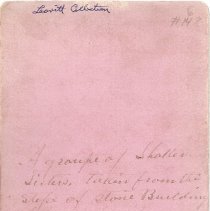 Leavitt Collection
A groupe of Shaker
Sisters, taken from the
steps of Stone Building